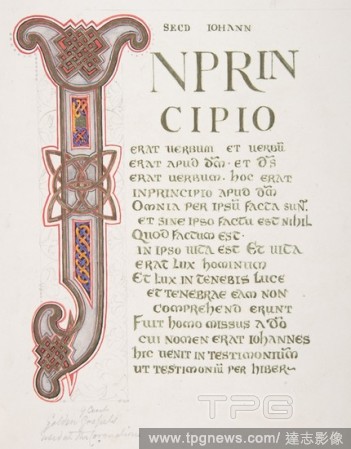 SECD IOHANN
INPRIN
CIPIO
ERAT UERBUM ET UERBŪ
ERAT APUD DM̄ · ET D̄S
ERAT UERBUM. HOC ERAT
INPRINCIPIO APUD DM̄
OMNIA PER IPSŪ FACTA SUNT
ET SINE IPSO FACTU EST NIHIL
QUOD FACTUM EST ·
IN IPSO UITA EST ET UITA
ERAT LUX HOMINUM
ET LUX IN TENEBIS LUCE
ET TENEBRAE EAM NON
COMPREHEND ERUNT
FUIT HOMO MISSUS A DŌ
CUI NOMEN ERAT IOHANNES
HIC UENIT IN TESTIMONIUM
UT TESTIMONIŪ PER HIBER
TPG
www.tpgnews.com / 達志影像